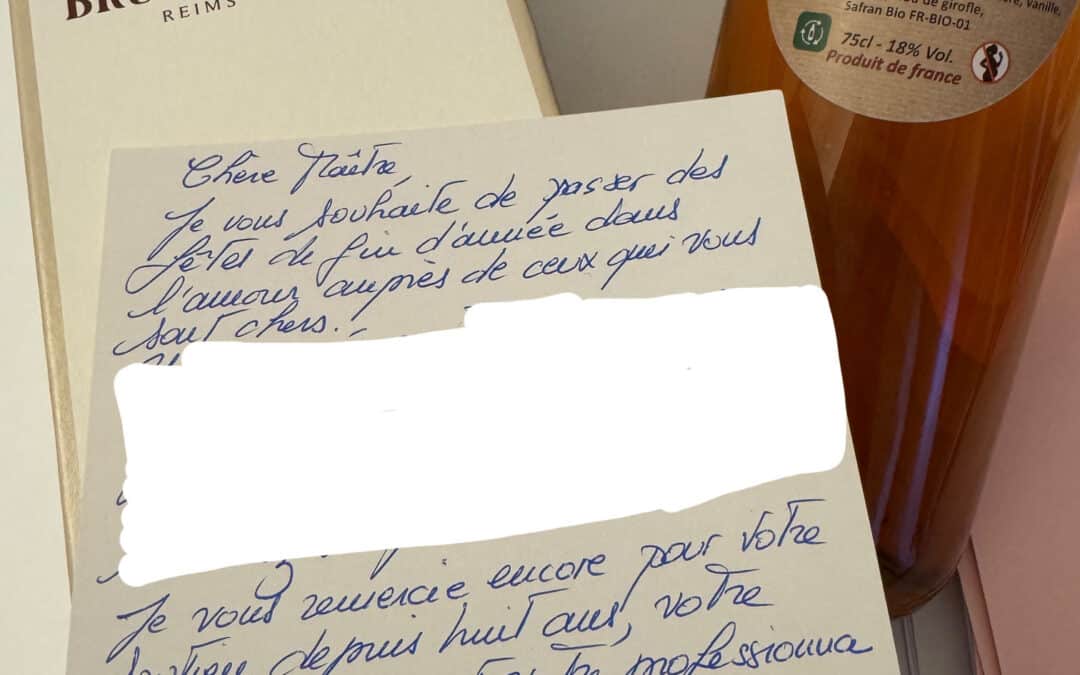 REIMS
de girofle, vanille,
Safran Bio FR-BIO-01
75cl - 18% Vol.
Produit de france
Chère Maître,
Je vous souhaite de passer des
fêtes de fin d'année dans
l'amour auprès de ceux qui vous
sont chers.
Je vous remercie encore pour votre
depuis huit ans, votre